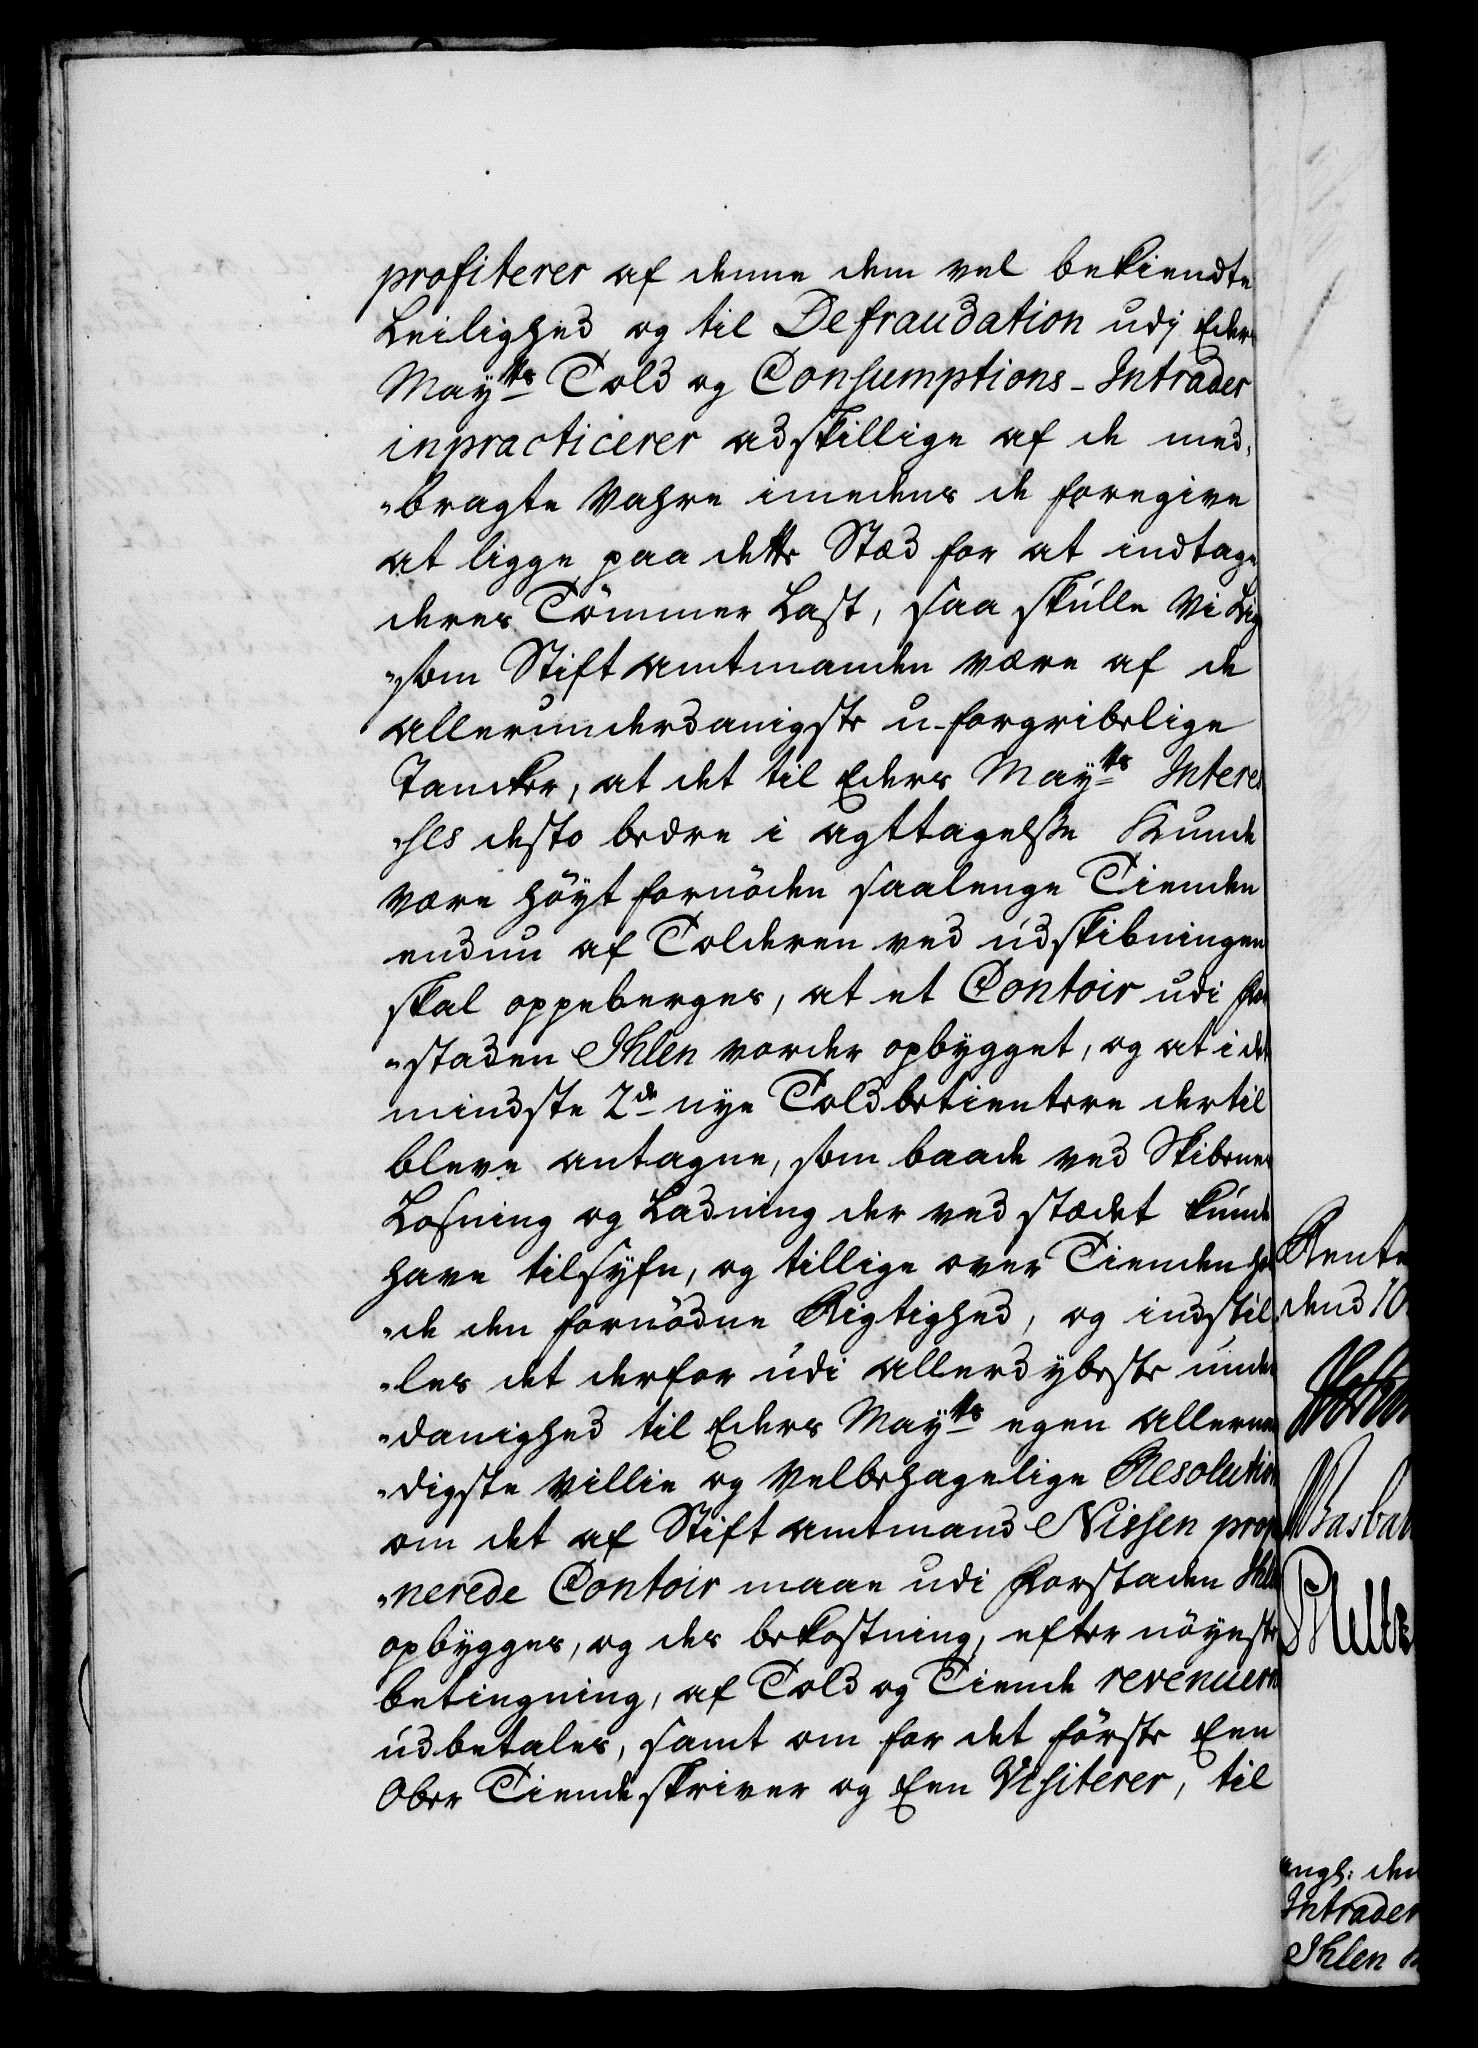 profiterer af denne dem vel bekiendte
Leilighed og til Defraudation udj Eders
Mayts Told og Consumptions-Intrader
inpracticerer adskillige af de med,
„bragte Vahre imedens de foregive
at ligge paa dette Stæd for at indtage
deres Tömmer Last, saa skulle Vi Lig
„som Stiftamtmanden være af de
allerunderdanigste u-forgribelige
Tancker, at det til Eders Mayts Interes
„ses desto bedre i agttagelsse kunde
være höyt fornöden saalenge Tienden
endnu af Tolderen ved udskibningen
skal oppeberges, at et Contoir udi for
„staden Ihlen vorder opbygget, og at i det
mindste 2de nye Toldbetientere dertil
bleve antagne, som baade ved Skibenes
Losning og Ladning der ved stædet kunde
have tilsyfn, og tillige over Tienden hol
„de den fornödne Rigtighed, og indstil
„les det derfor udi allerdybeste under
„danighed til Eders Mayts egen allernaa
„digste villie og velbehagelige Resolution
om det af Stiftamtmand Nissen propo
„nerede Contoir maae udi Forstaden Ihlen
opbygges, og des bekostning, efter nöyeste
betingning, af Told og Tiende revenuern
udbetales, samt om for det förste Een
Ober Tiendeskriver og Een Visiterer, til
Rente
dend 10
ang: den
Intrader
Ihlen